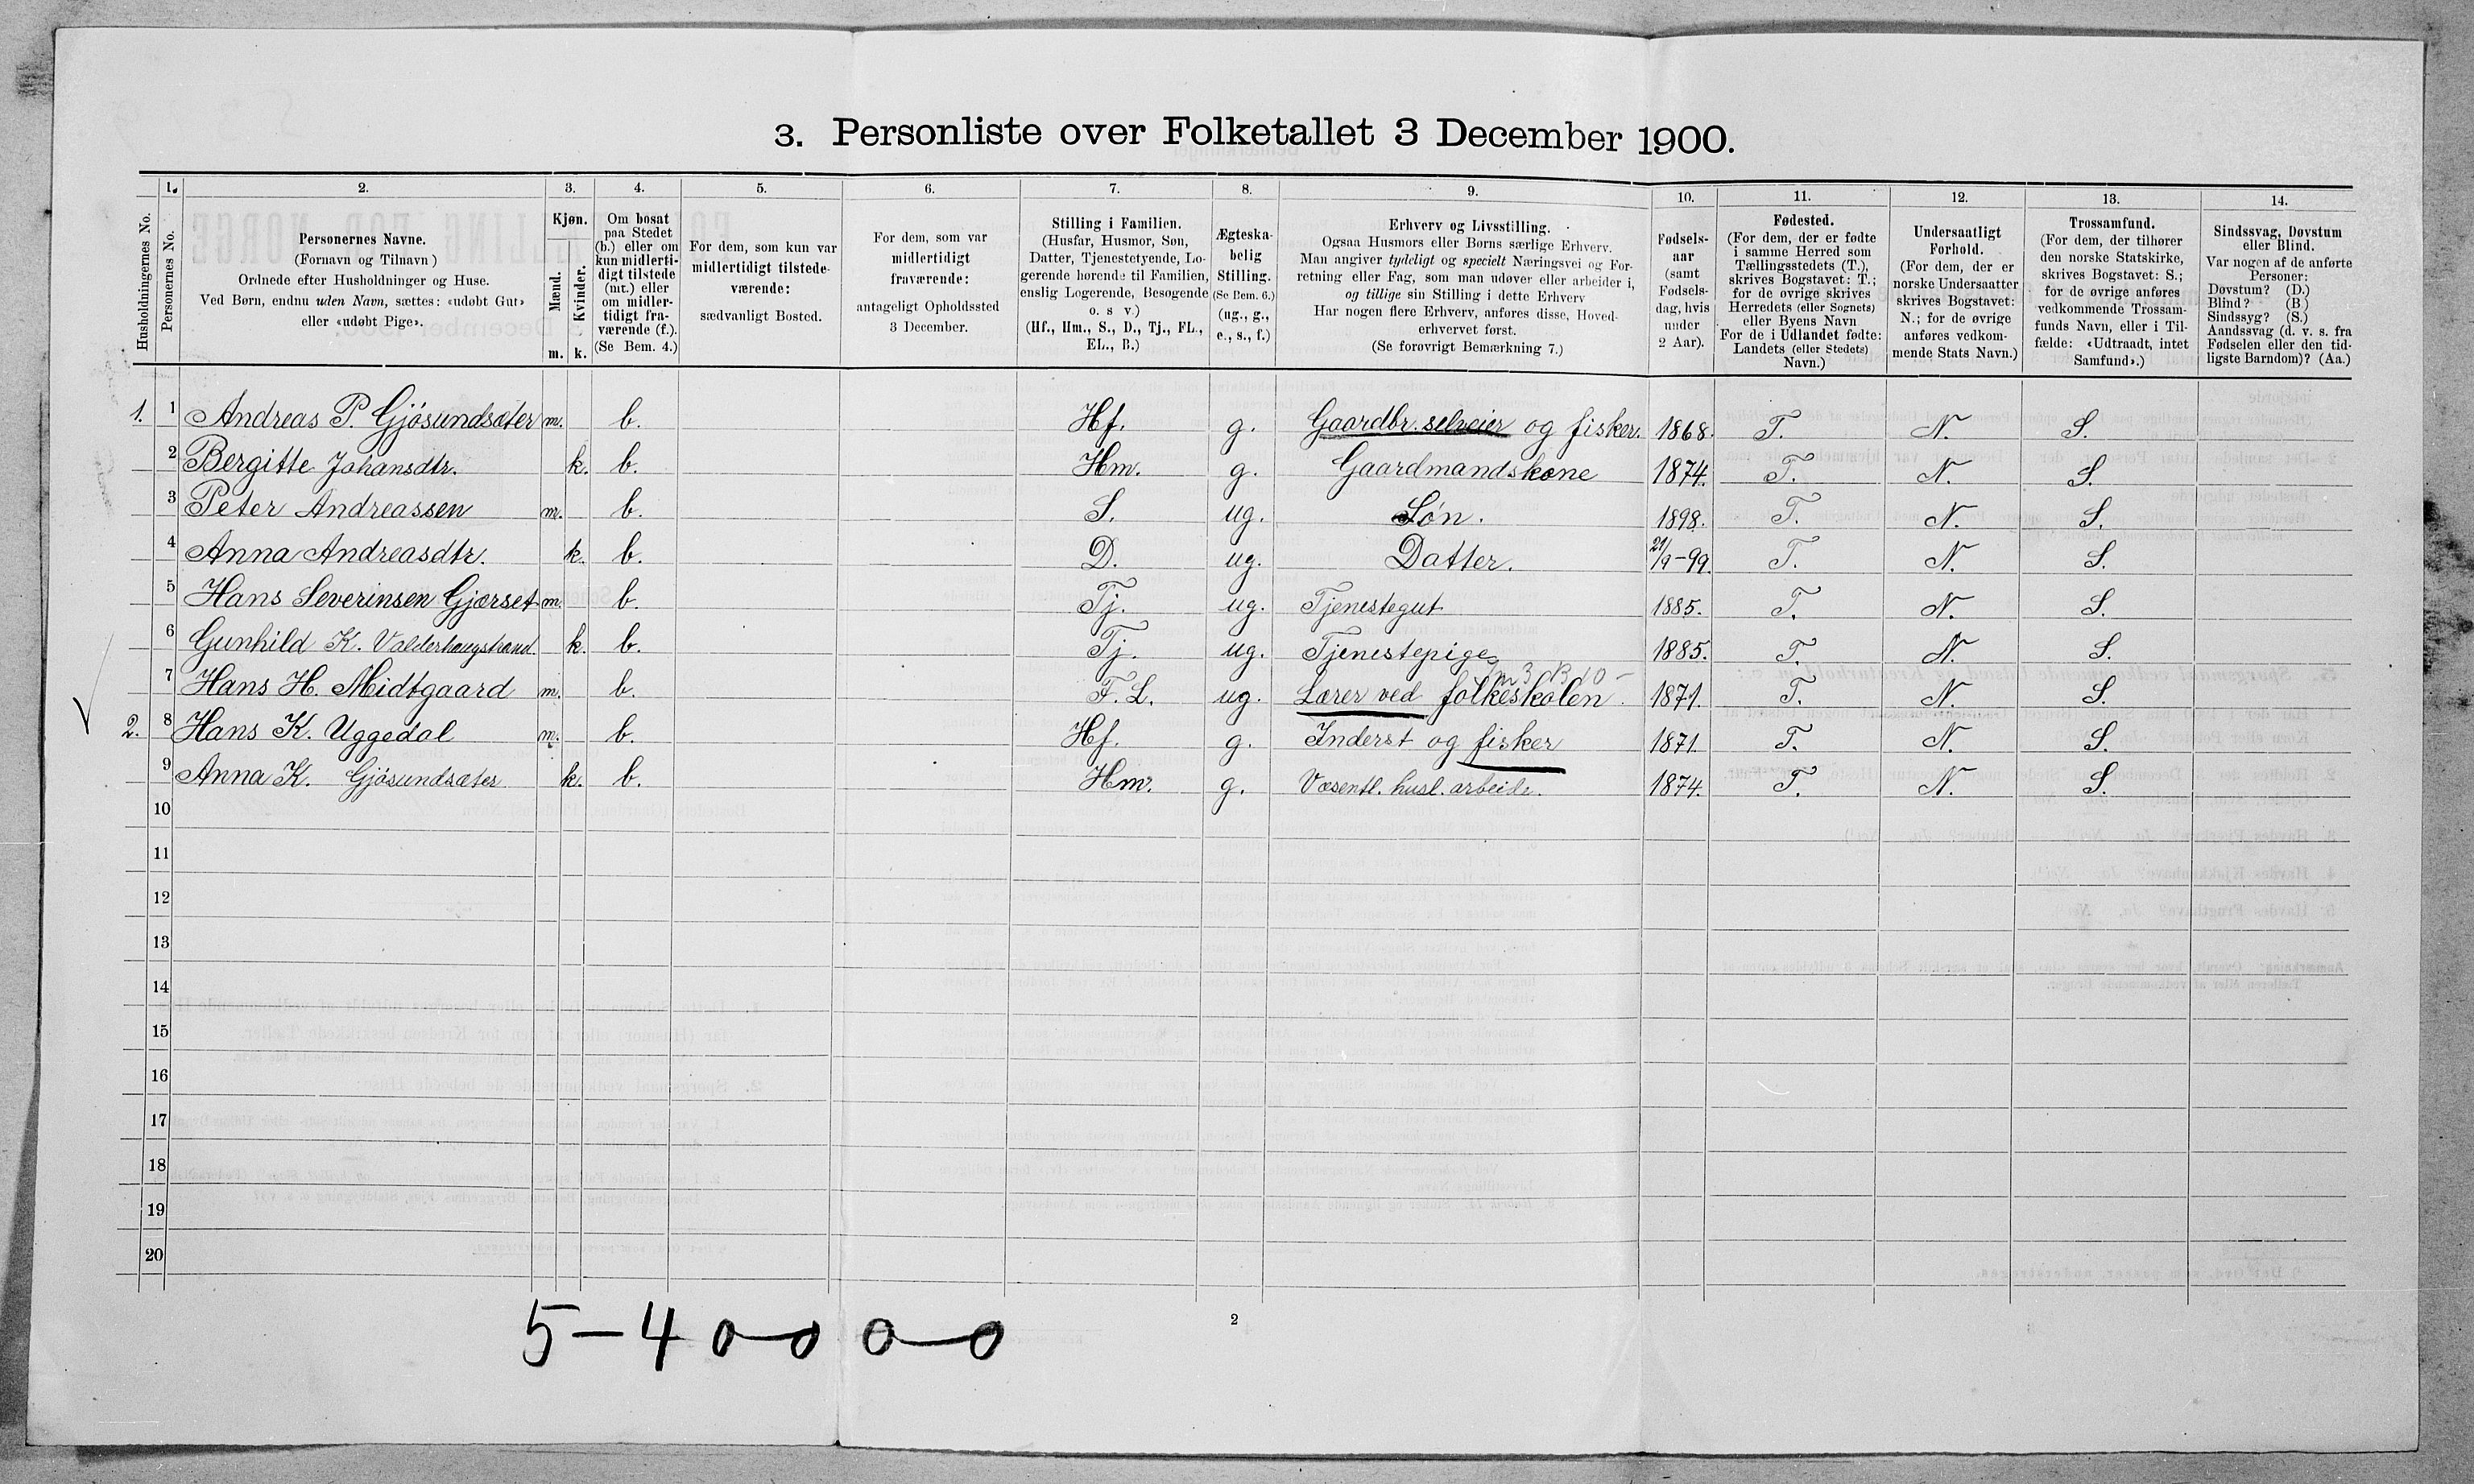 3. Personliste over Folketallet 3 December 1900.
Husholdningernes No.
1.
Personernes No.
2.
Personernes Navne.
(Fornavn og Tilnavn)
Ordnede efter Husholdninger og Huse.
Ved Børn, endnu uden Navn, sættes: «udøbt Gut»
eller «udøbt Pige».
3.
Kjøn.
Mænd.
Kvinder.
m. k.
4.
Om bosat
paa Stedet
(b.) eller om
kun midlerti-
digt tilstede
(mt.) eller
om midler-
tidigt fra-
værende (f.).
(Se Bem. 4.)
5.
For dem, som kun var
midlertidigt tilstede-
værende:
sædvanligt Bosted.
6.
For dem, som var
midlertidigt
fraværende:
antageligt Opholdssted
3 December.
7.
Stilling i Familien.
(Husfar, Husmor, Søn,
Datter, Tjenestetyende, Lo-
gerende hørende til Familien,
enslig Logerende, Besøgende
o. s v.)
(Hf., Hm., S., D., Tj., FL.,
EL., B.)
8.
Ægteska-
belig
Stilling.
(Se Bem. 6.)
(ug., g.,
e., s., f.)
9.
Erhverv og Livsstilling.
Ogsaa Husmors eller Børns særlige Erhverv.
Man angiver tydeligt og specielt Næringsvei og For-
retning eller Fag, som man udøver eller arbeider i,
og tillige sin Stilling i dette Erhverv
Har nogen flere Erhverv, anføres disse, Hoved-
erhvervet først.
(Se forøvrigt Bemærkning 7.)
10.
Fødsels-
aar
(samt
Fødsels-
dag, hvis
under
2 Aar).
11.
Fødested.
(For dem, der er fødte
i samme Herred som
Tællingsstedets (T.),
skrives Bogstavet: T.;
for de øvrige skrives
Herredets (eller Sognets)
eller Byens Navn
For de i Udlandet fødte:
Landets (eller Stedets)
Navn.)
12.
Undersaatligt
Forhold.
(For dem, der er
norske Undersaatter
skrives Bogstavet:
N.; for de øvrige
anføres vedkom-
mende Stats Navn.)
13.
Trossamfund.
(For dem, der tilhører
den norske Statskirke,
skrives Bogstavet: S.;
for de øvrige anføres
vedkommende Trossam-
funds Navn, eller i Til-
fælde: «Udtraadt, intet
Samfund».)
14.
Sindssvag, Døvstum
eller Blind.
Var nogen af de anførte
Personer:
Døvstum? (D.)
Blind? (B.)
Sindssyg? (S.)
Aandssvag (d. v. s. fra
Fødselen eller den tid-
ligste Barndom)? (Aa.)
1. 1 Andreas P. Gjösundsæter m. b. Hf. g. Gaardbr. selveier og fisker. 1868. T. N. S.
2 Bergitte Johansdtr. k. b. Hm. g. Gaardmandskone 1874. T. N. S.
3 Peter Andreassen m. b. S. ug. Søn. 1898. T. N. S.
4 Anna Andreasdtr. k. b. D. ug. Datter. 21/9-99. T. N. S.
5 Hans Severinsen Gjærset m. b. Tj. ug. Tjenestegut 1885. T. N. S.
6 Gunhild K. Valderhaugstrand. k. b. Tj. ug. Tjenestepige 1885. T. N. S.
7 Hans H. Midtgaard m. b. F. L. ug. Lærer ved folkeskolen. 1871. T. N. S.
2. 8 Hans K. Uggedal m. b. Hf. g. Inderst og fisker 1871. T. N. S.
9 Anna K. Gjösundsæter k. b. Hm. g. Væsentl. husl. arbeide. 1874. T. N. S.
10
11
12
13
14
15
16
17
18
19
20
2
5-4 0-0 0-0